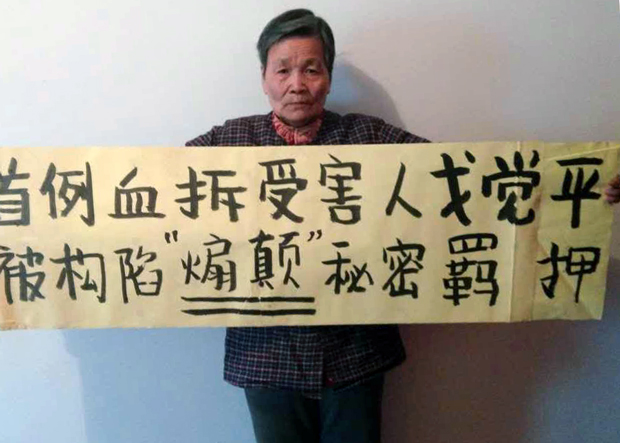 首例血拆受害人戈觉平
被构陷“煽颠”秘密羁押